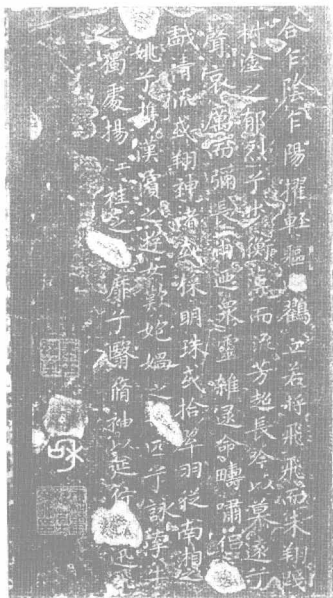 合乍陰乍陽擢輕軀鶴立若將飛而未翔踐
椒塗之郁烈兮步衡薄而流芳超長吟以慕遠兮
聲哀厲而彌長爾迺衆靈雜遝命疇嘯侶或
戲清流或翔神渚或採明珠或拾翠羽從南湘之二
姚兮攜漢濱之遊女歎匏媧之匹兮詠牽牛
之獨處揚輕袿之靡兮翳脩袖以延佇迅飛